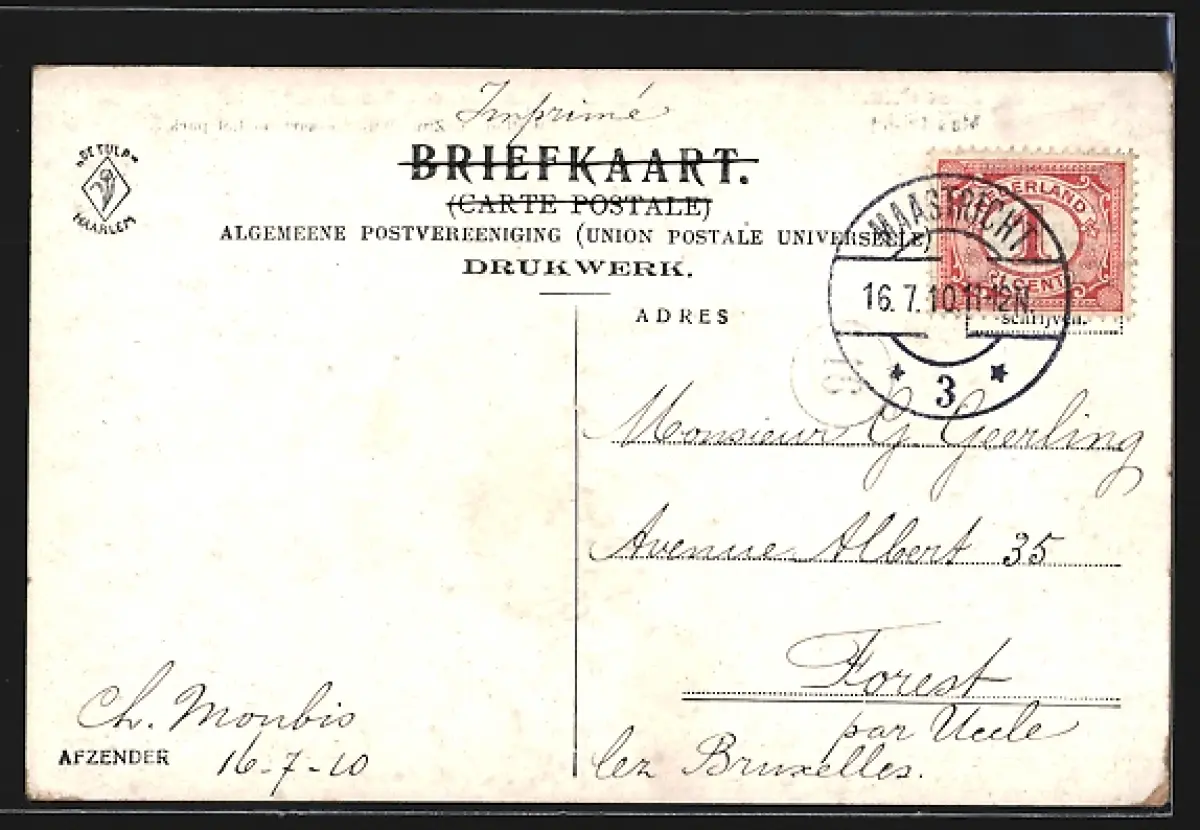 Imprimé
"DE TULP"
HAARLEM
BRIEFKAART.
(CARTE POSTALE)
ALGEMEENE POSTVEREENIGING (UNION POSTALE UNIVERSELLE)
DRUKWERK.
ADRES
NEDERLAND
1
CENT
MAASTRICHT
16.7.10 11-12N.
3
schrijven.
Monsieur G. Geerling
Avenue Albert 35
Forest
par Uccle
lez Bruxelles.
Ch. Monbis
AFZENDER 16-7-10